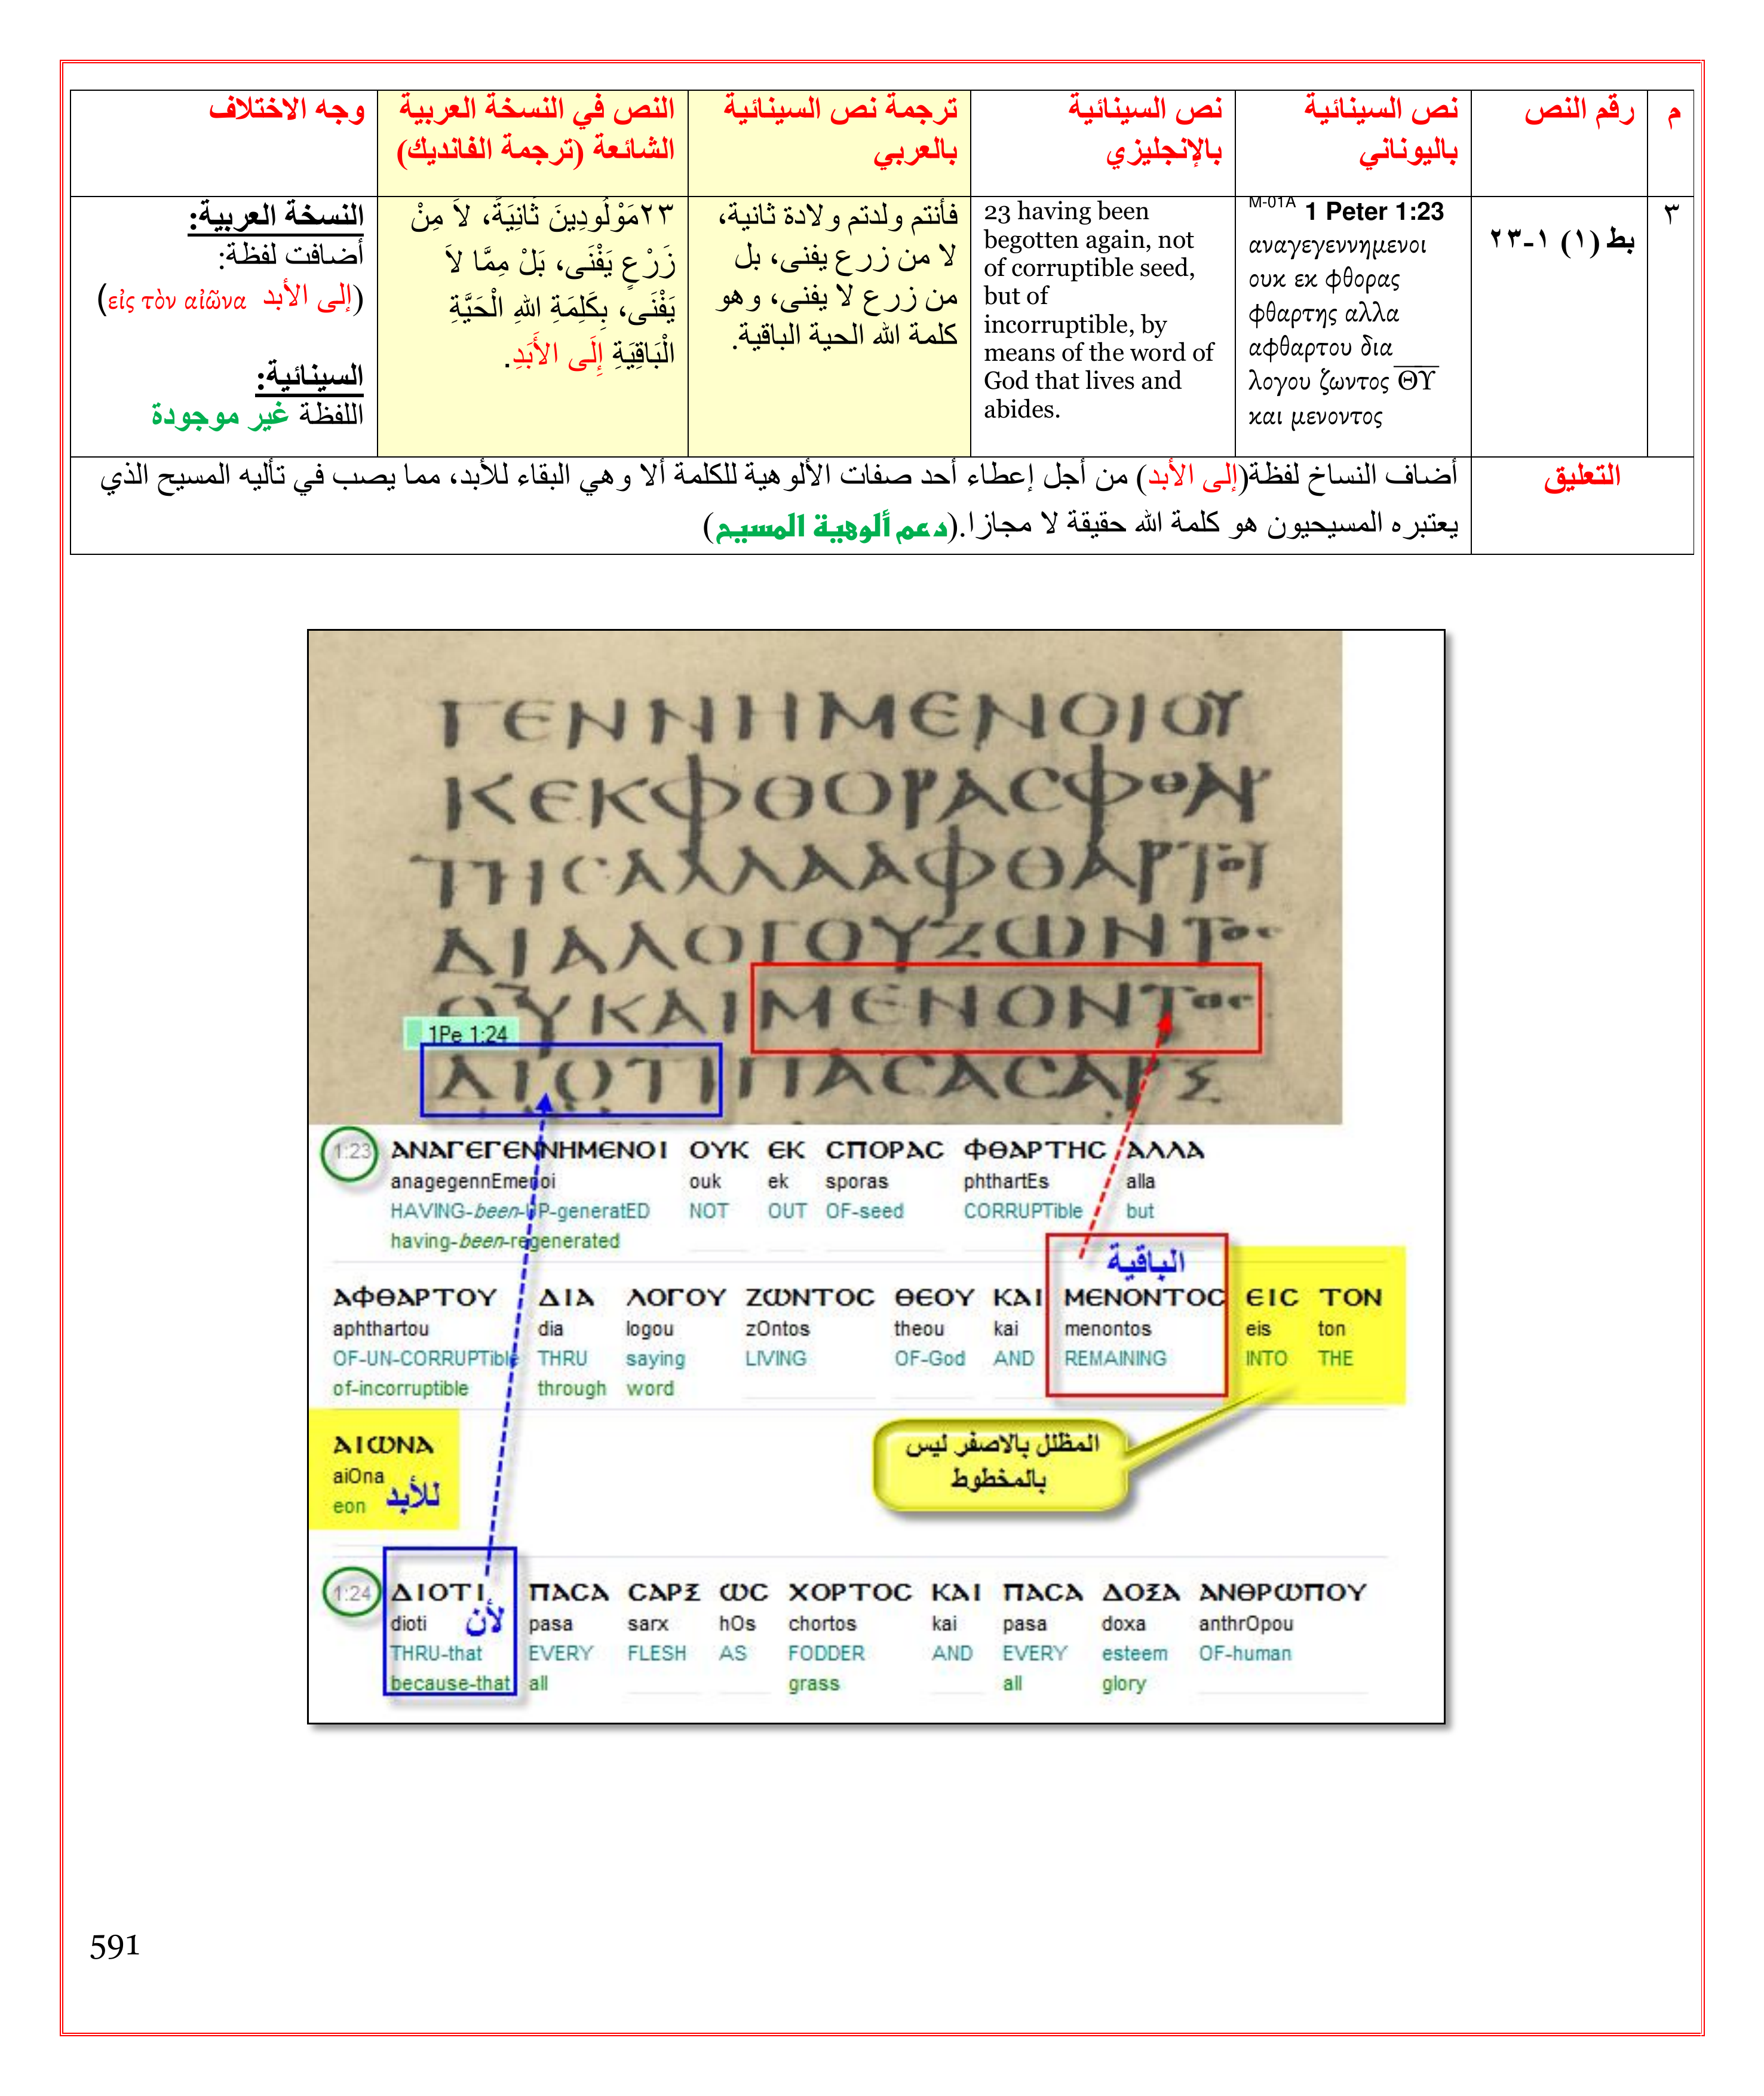 م
رقم النص
نص السينائية
باليوناني
نص السينائية
بالإنجليزي
ترجمة نص السينائية
بالعربي
النص في النسخة العربية
الشائعة (ترجمة الفانديك)
وجه الاختلاف
٣
بط (١) ١-٢٣
M-01A 1 Peter 1:23
αναγεγεννημενοι
ουκ εκ φθορας
φθαρτης αλλα
αφθαρτου δια
λογου ζωντος Θ̅Υ̅
και μενοντος
23 having been
begotten again, not
of corruptible seed,
but of
incorruptible, by
means of the word of
God that lives and
abides.
فأنتم ولدتم ولادة ثانية،
لا من زرع يفنى، بل
من زرع لا يفنى، وهو
كلمة الله الحية الباقية.
٢٣مَوْلُودِينَ ثَانِيَةً، لاَ مِنْ
زَرْعٍ يَفْنَى، بَلْ مِمَّا لاَ
يَفْنَى، بِكَلِمَةِ اللهِ الْحَيَّةِ
الْبَاقِيَةِ إِلَى الأَبَدِ.
النسخة العربية:
أضافت لفظة:
(إلى الأبد εἰς τὸν αἰῶνα)
السينائية:
اللفظة غير موجودة
التعليق
أضاف النساخ لفظة(إلى الأبد) من أجل إعطاء أحد صفات الألوهية للكلمة ألا وهي البقاء للأبد، مما يصب في تأليه المسيح الذي
يعتبره المسيحيون هو كلمة الله حقيقة لا مجازا.(دعم ألوهية المسيح)
ΓΕΝΝΗΜΕΝΟΙΟΥ
ΚΕΚΦΘΟΡΑCΦΘΑΡ
ΤΗCΑΛΛΑΑΦΘΑΡΤΟΥ
ΔΙΑΛΟΓΟΥΖΩΝΤΟC
ΘΥΚΑΙΜΕΝΟΝΤΟC
1Pe 1:24
ΔΙΟΤΙΠΑCΑCΑΡΞ
1:23 ΑΝΑΓΕΓΕΝΝΗΜΕΝΟΙ ΟΥΚ ΕΚ CΠΟΡΑC ΦΘΑΡΤΗC ΑΛΛΑ
anagegennEmenoi ouk ek sporas phthartEs alla
HAVING-been-UP-generatED NOT OUT OF-seed CORRUPTible but
having-been-regenerated
الباقية
ΑΦΘΑΡΤΟΥ ΔΙΑ ΛΟΓΟΥ ΖΩΝΤΟC ΘΕΟΥ ΚΑΙ ΜΕΝΟΝΤΟC ΕΙC ΤΟΝ
aphthartou dia logou zOntos theou kai menontos eis ton
OF-UN-CORRUPTible THRU saying LIVING OF-God AND REMAINING INTO THE
of-incorruptible through word
المظلل بالاصفر ليس
بالمخطوط
ΑΙΩΝΑ
aiOna
eon للأبد
1:24 ΔΙΟΤΙ ΠΑCΑ CΑΡΞ ΩC ΧΟΡΤΟC ΚΑΙ ΠΑCΑ ΔΟΞΑ ΑΝΘΡΩΠΟΥ
dioti لأن pasa sarx hOs chortos kai pasa doxa anthrOpou
THRU-that EVERY FLESH AS FODDER AND EVERY esteem OF-human
because-that all grass all glory
591